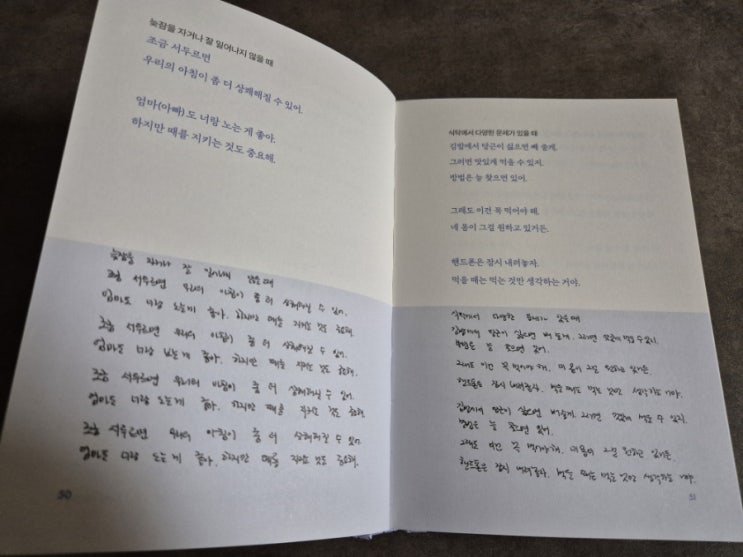 늦잠을 자거나 잘 일어나지 않을 때
조금 서두르면
우리의 아침이 좀 더 상쾌해질 수 있어.
엄마(아빠)도 너랑 노는 게 좋아.
하지만 때를 지키는 것도 중요해.
늦잠을 자거나 잘 일어나지 않을 때
조금 서두르면 우리의 아침이 좀 더 상쾌해질 수 있어.
엄마도 너랑 노는게 좋아. 하지만 때를 지키는 것도 중요해.
조금 서두르면 우리의 아침이 좀 더 상쾌해질 수 있어.
엄마도 너랑 노는게 좋아. 하지만 때를 지키는 것도 중요해.
조금 서두르면 우리의 아침이 좀 더 상쾌해질 수 있어.
엄마도 너랑 노는게 좋아. 하지만 때를 지키는 것도 중요해.
조금 서두르면 우리의 아침이 좀 더 상쾌해질 수 있어.
엄마도 너랑 노는게 좋아. 하지만 때를 지키는 것도 중요해.
50
식탁에서 다양한 문제가 있을 때
김밥에서 당근이 싫으면 빼 줄게.
그러면 맛있게 먹을 수 있지.
방법은 늘 찾으면 있어.
그래도 이건 꼭 먹어야 해.
네 몸이 그걸 원하고 있거든.
핸드폰은 잠시 내려놓자.
먹을 때는 먹는 것만 생각하는 거야.
식탁에서 다양한 문제가 있을 때
김밥에서 당근이 싫으면 빼 줄게. 그러면 맛있게 먹을 수 있지.
방법은 늘 찾으면 있어.
그래도 이건 꼭 먹어야 해. 네 몸이 그걸 원하고 있거든.
핸드폰은 잠시 내려놓자. 먹을 때는 먹는 것만 생각하는 거야.
김밥에서 당근이 싫으면 빼줄게. 그러면 맛있게 먹을 수 있지.
방법은 늘 찾으면 있어.
그래도 이건 꼭 먹어야 해. 네 몸이 그걸 원하고 있거든.
핸드폰은 잠시 내려놓자. 먹을 때는 먹는 것만 생각하는 거야.
51